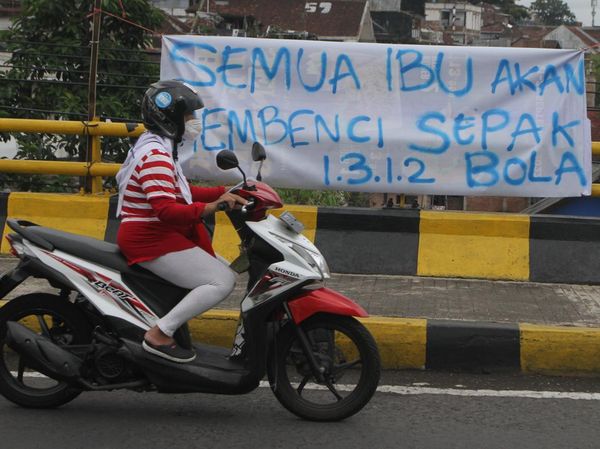 57
SEMUA IBU AKAN
MEMBENCI SEPAK
1.3.1.2 BOLA
HONDA
BeAT